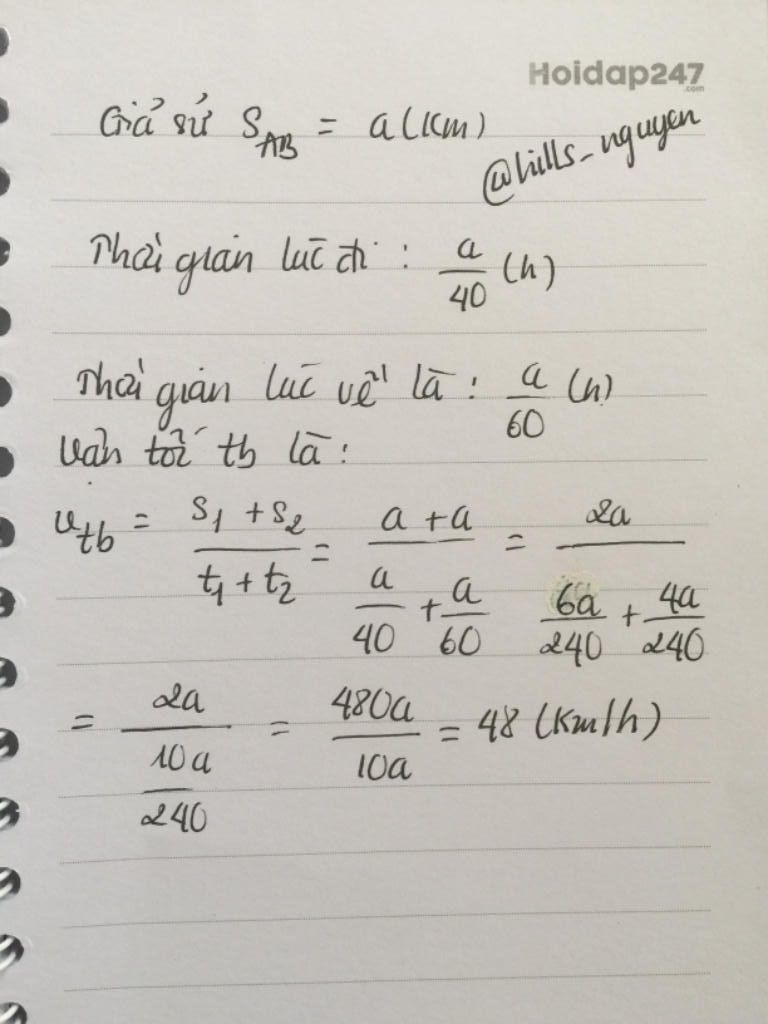 Hoidap247
.com
Giả sử S_AB = a (Km)
@hills_nguyen
Thời gian lúc đi : a/40 (h)
Thời gian lúc về là : a/60 (h)
Vận tốc tb là :
v_tb = (S_1 + S_2)/(t_1 + t_2) = (a + a)/(a/40 + a/60) = 2a/(6a/240 + 4a/240)
= 2a/(10a/240) = 480a/10a = 48 (Km/h)